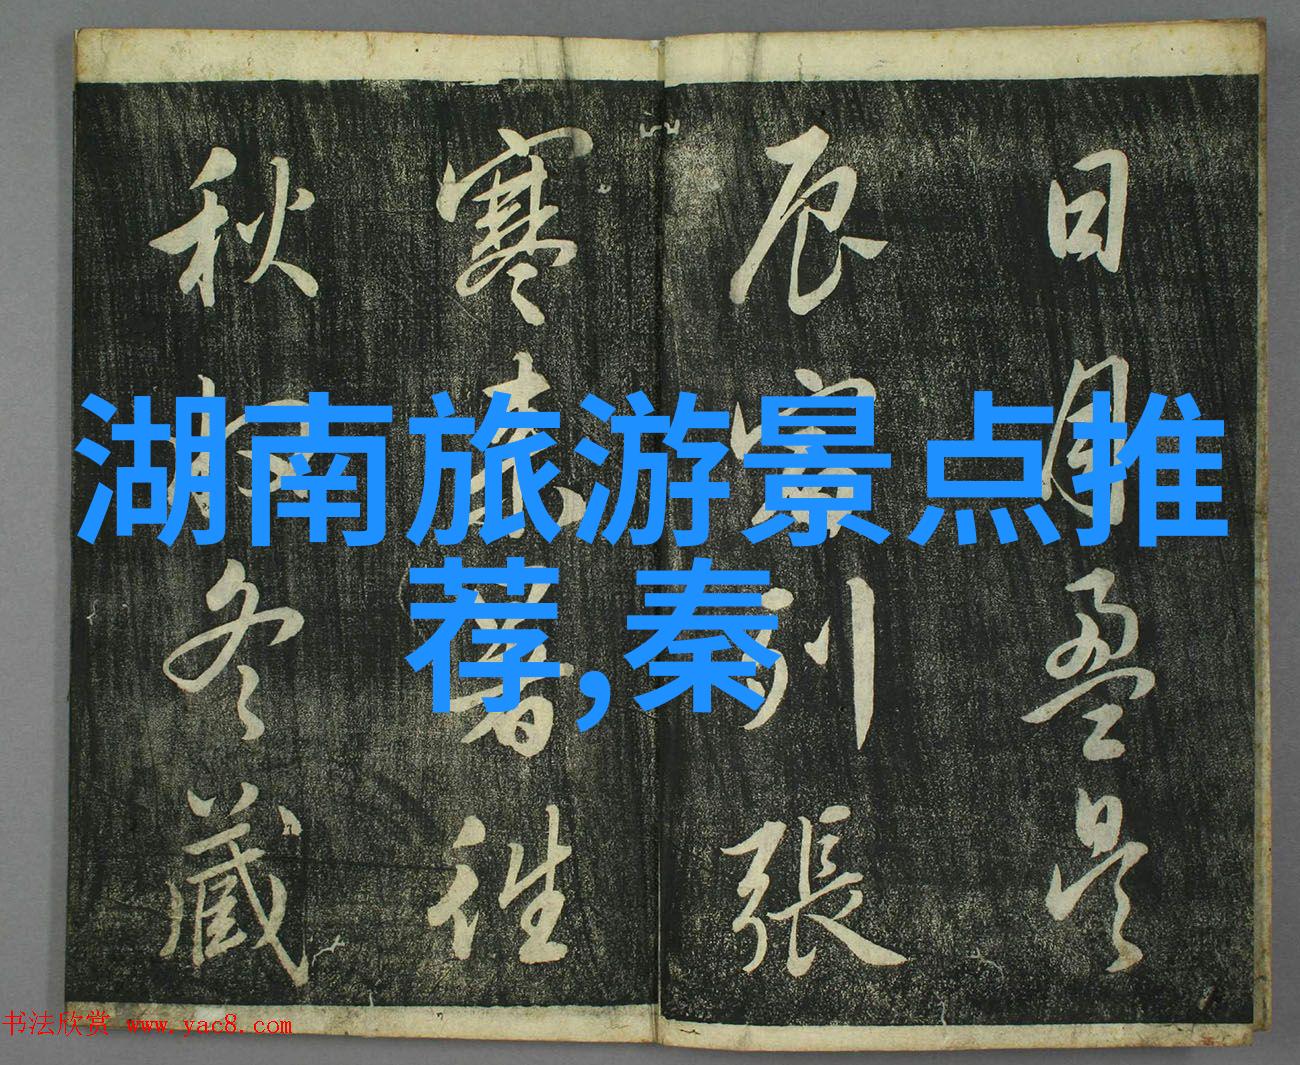 湖南旅游景点推
荐,秦
日月盈昃
辰宿列張
寒来暑往
秋收冬藏
书法欣赏 www.yac8.com